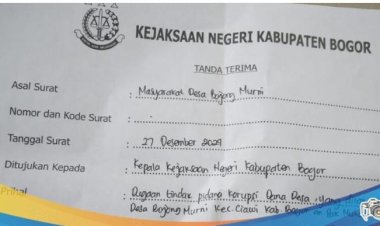 KEJAKSAAN NEGERI KABUPATEN BOGOR
TANDA TERIMA
Asal Surat : Masyarakat Desa Bojong Murni
Nomor dan Kode Surat : -
Tanggal Surat : 27 Desember 2024
Ditujukan Kepada : Kepala Kejaksaan Negeri Kabupaten Bogor
Prihal : Dugaan tindak pidana korupsi Dana Desa yang
Desa Bojong Murni Kec. Ciawi Kab. Bogor an